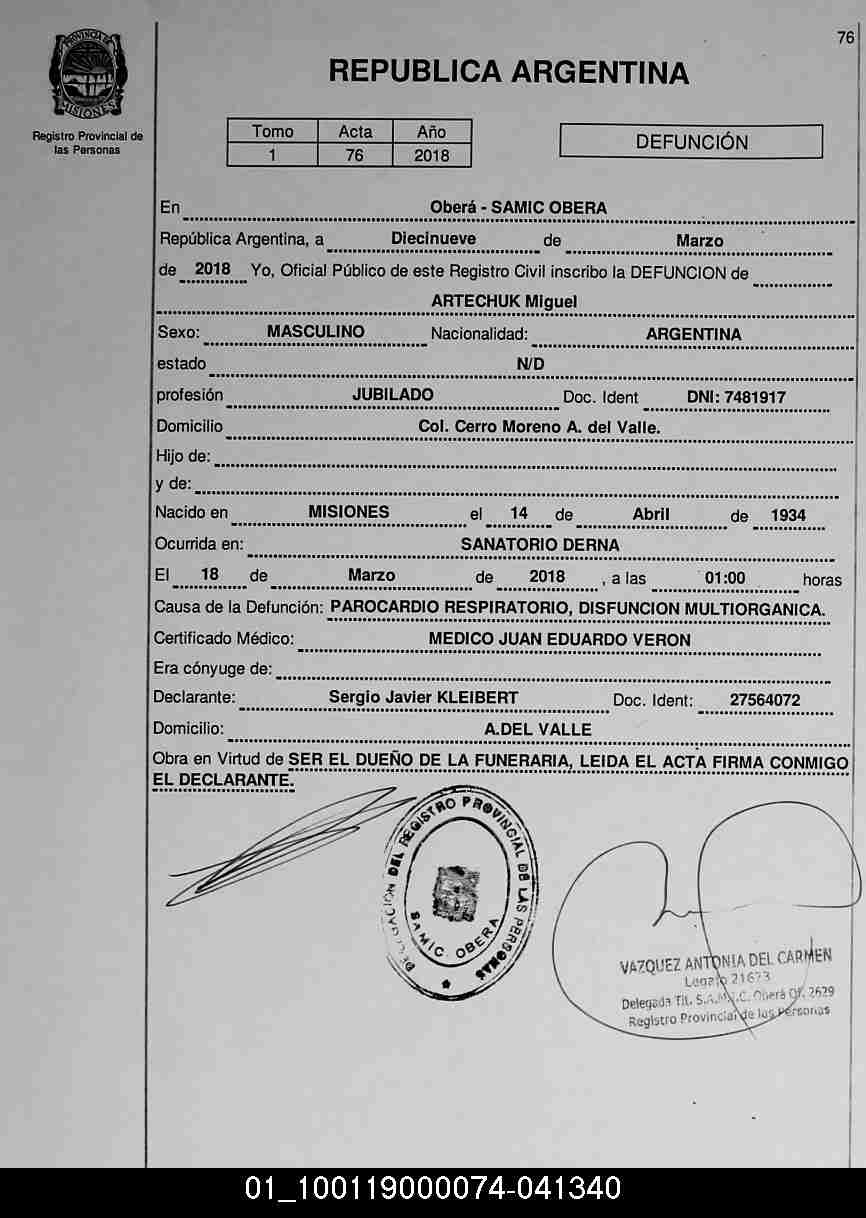 76
PROVINCIA DE
MISIONES
Registro Provincial de
las Personas
REPUBLICA ARGENTINA
Tomo Acta Año
1 76 2018
DEFUNCIÓN
En Oberá - SAMIC OBERA
República Argentina, a Diecinueve de Marzo
de 2018 Yo, Oficial Público de este Registro Civil inscribo la DEFUNCION de
ARTECHUK Miguel
Sexo: MASCULINO Nacionalidad: ARGENTINA
estado N/D
profesión JUBILADO Doc. Ident DNI: 7481917
Domicilio Col. Cerro Moreno A. del Valle.
Hijo de:
y de:
Nacido en MISIONES el 14 de Abril de 1934
Ocurrida en: SANATORIO DERNA
El 18 de Marzo de 2018 , a las 01:00 horas
Causa de la Defunción: PAROCARDIO RESPIRATORIO, DISFUNCION MULTIORGANICA.
Certificado Médico: MEDICO JUAN EDUARDO VERON
Era cónyuge de:
Declarante: Sergio Javier KLEIBERT Doc. Ident: 27564072
Domicilio: A.DEL VALLE
Obra en Virtud de SER EL DUEÑO DE LA FUNERARIA, LEIDA EL ACTA FIRMA CONMIGO
EL DECLARANTE.
DELEGACION DEL REGISTRO PROVINCIAL DE LAS PERSONAS
SAMIC. OBERA
VAZQUEZ ANTONIA DEL CARMEN
Legajo 21673
Delegada Tit. S.A.M.I.C. Oberá Of. 2629
Registro Provincial de las Personas
01_100119000074-041340